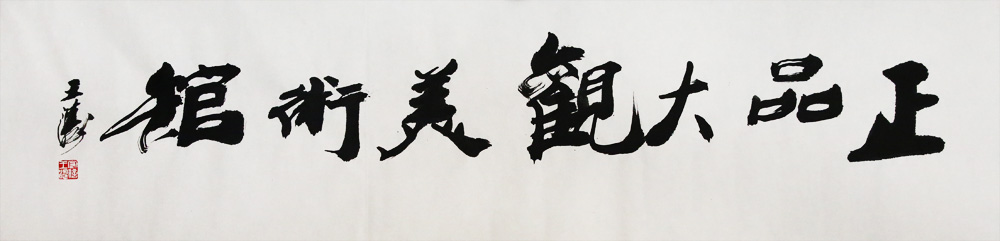 正品大觀美術館
王濤